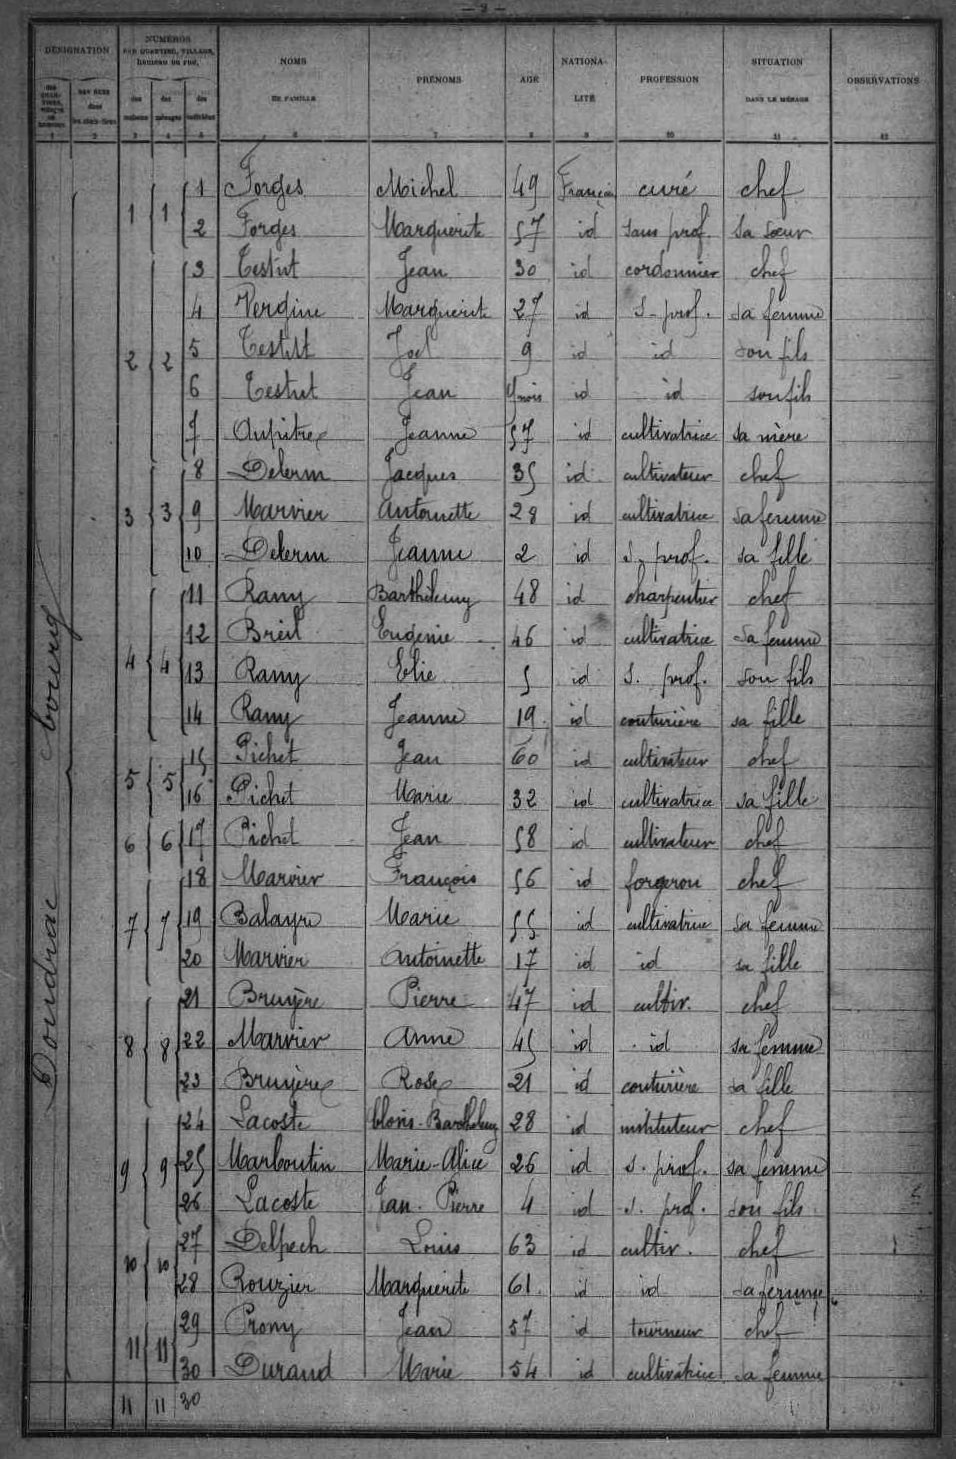 — 2 —
DÉSIGNATION
NUMÉROS
PAR QUARTIER, VILLAGE,
hameau ou rue,
NOMS
DE FAMILLE
PRÉNOMS
AGE
NATIONA-
LITÉ
PROFESSION
SITUATION
DANS LE MÉNAGE
OBSERVATIONS
des maisons
des ménages
des individus
1 2 3 4 5 6 7 8 9 10 11 12
Doudrac bourg
1 1 1 Forges Michel 49 Français curé chef
2 Forges Marguerite 57 id sans prof. sa sœur
2 2 3 Testut Jean 30 id cordonnier chef
4 Vergine Marguerite 27 id s. prof. sa femme
5 Testut Joel 9 id id son fils
6 Testut Jean 9 mois id id son fils
7 Aupitre Jeanne 57 id cultivatrice sa mère
3 3 8 Delerm Jacques 35 id cultivateur chef
9 Marvier Antoinette 28 id cultivatrice sa femme
10 Delerm Jeanne 2 id s. prof. sa fille
4 4 11 Ramy Barthélemy 48 id charpentier chef
12 Breil Eugénie 46 id cultivatrice sa femme
13 Ramy Elie 5 id s. prof. son fils
14 Ramy Jeanne 19 id couturière sa fille
5 5 15 Pichet Jean 60 id cultivateur chef
16 Pichet Marie 32 id cultivatrice sa fille
6 6 17 Pichet Jean 58 id cultivateur chef
7 7 18 Marvier François 56 id forgeron chef
19 Balayre Marie 55 id cultivatrice sa femme
20 Marvier Antoinette 17 id id sa fille
8 8 21 Bruyère Pierre 47 id cultiv. chef
22 Marvier Anne 45 id id sa femme
23 Bruyère Rose 21 id couturière sa fille
9 9 24 Lacoste Clovis-Barthélemy 28 id instituteur chef
25 Marboutin Marie-Alice 26 id s. prof. sa femme
26 Lacoste Jean-Pierre 4 id s. prof. son fils
10 10 27 Delpech Louis 63 id cultiv. chef
28 Rouzier Marguerite 61 id id sa femme
11 11 29 Prony Jean 57 id tourneur chef
30 Durand Marie 54 id cultivatrice sa femme
11 11 30